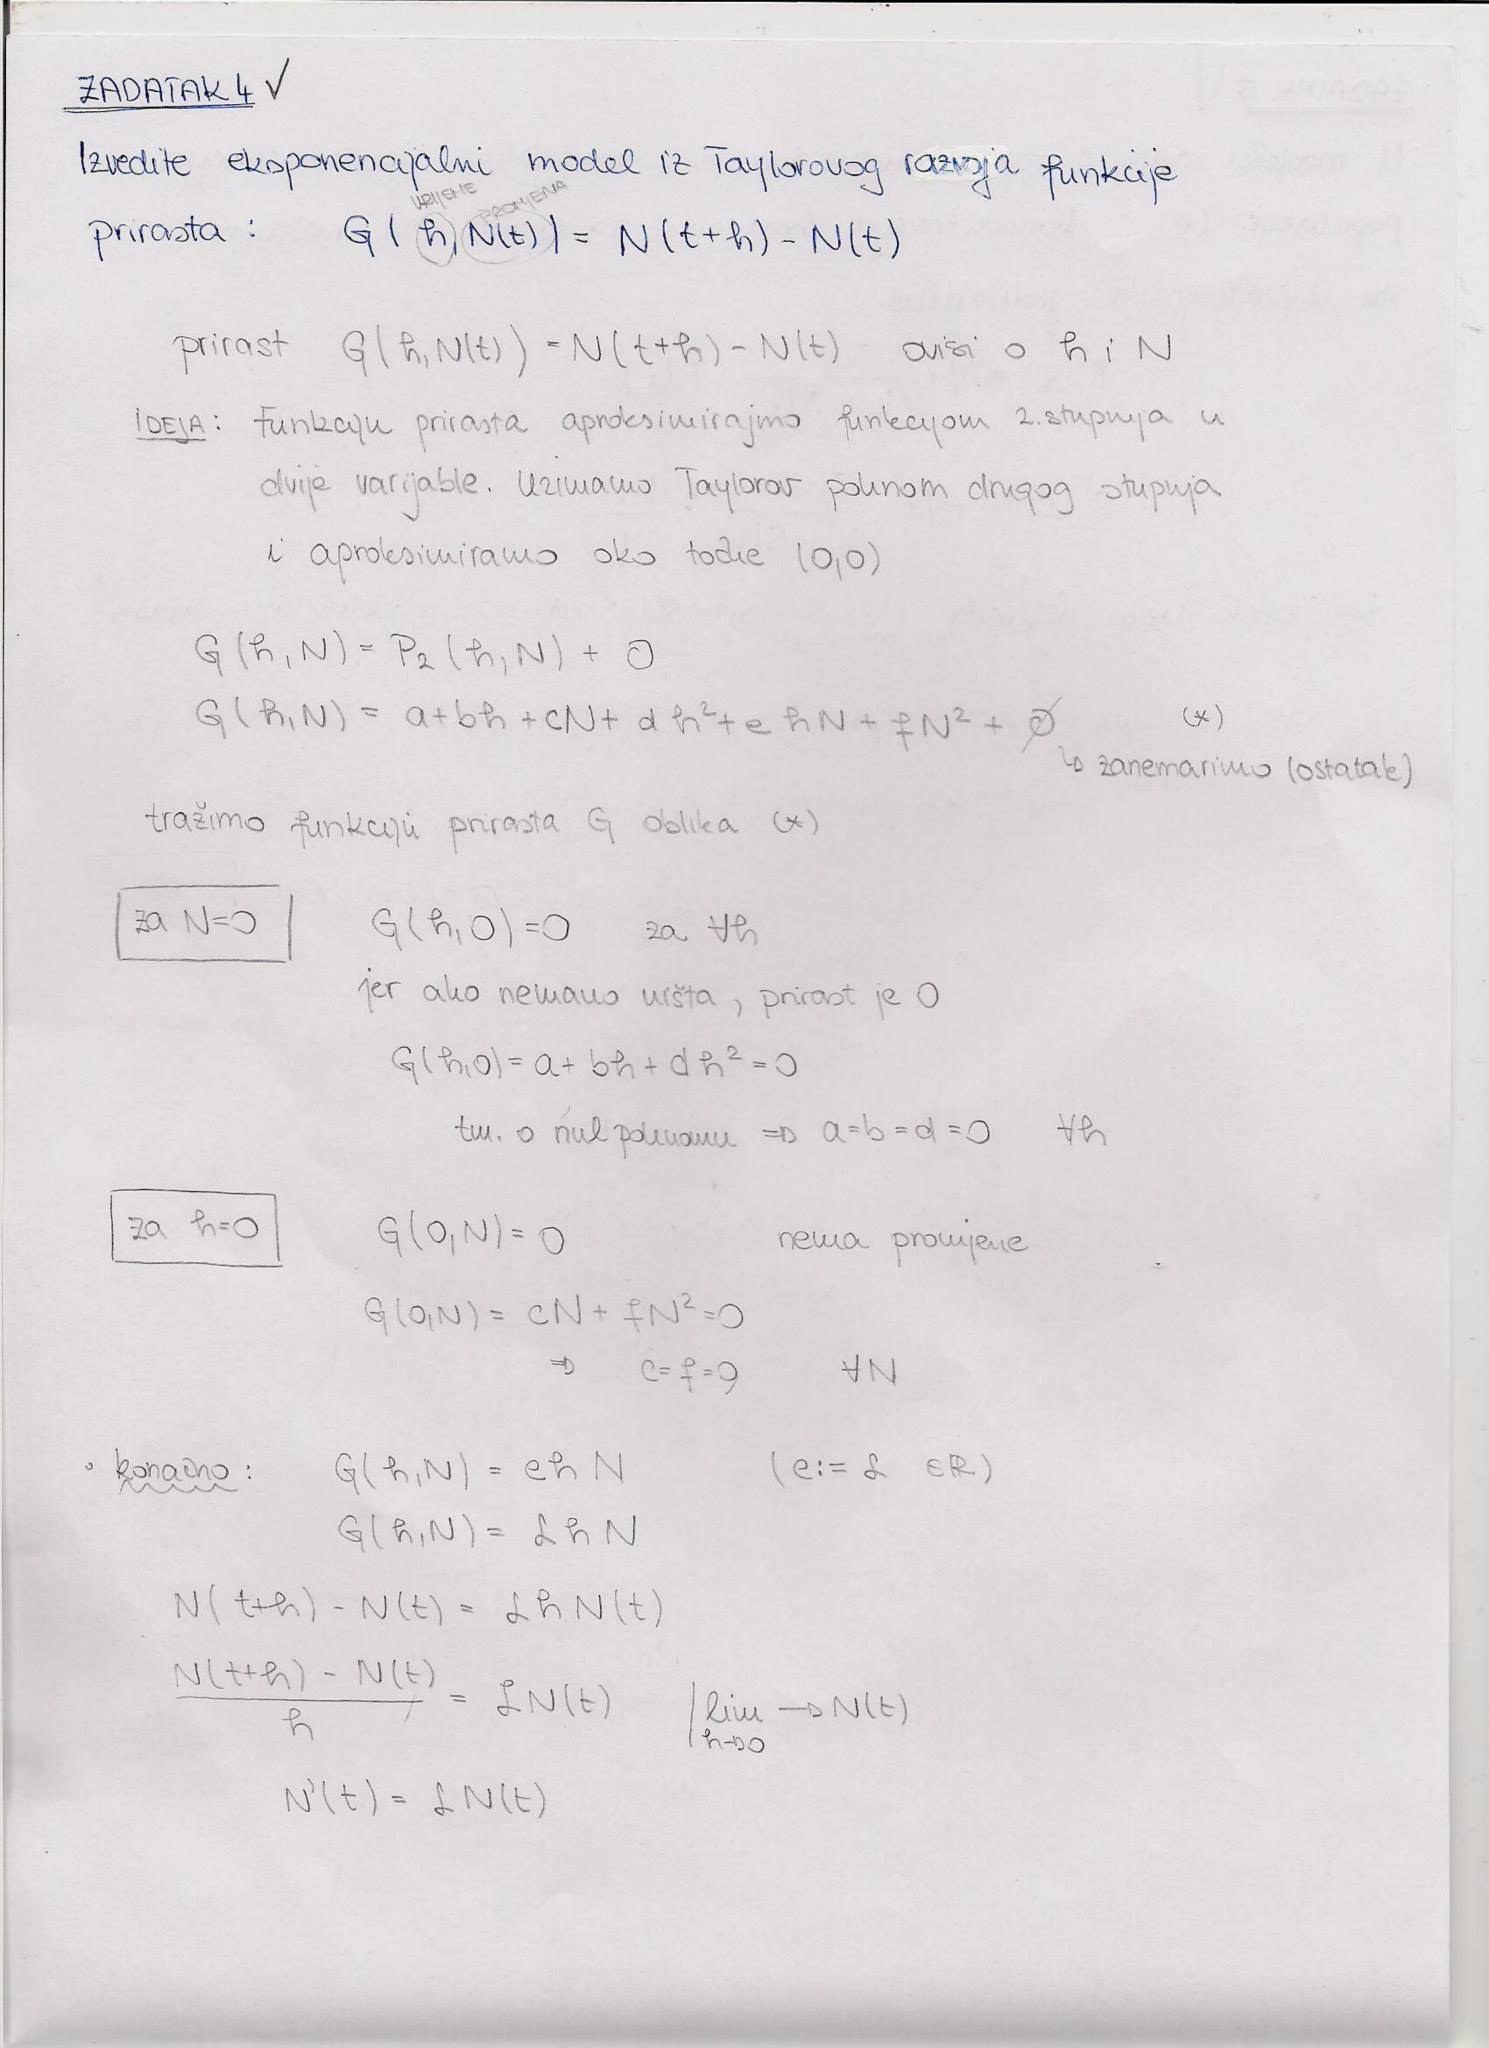 ZADATAK 4 ✓
Izvedite eksponencijalni model iz Taylorovog razvoja funkcije
VRIJEME PROMJENA
prirasta : G(h, N(t)) = N(t+h) - N(t)
prirast G(h, N(t)) = N(t+h) - N(t) ovisi o h i N
IDEJA: Funkciju prirasta aproksimirajmo funkcijom 2. stupnja u
dvije varijable. Uzimamo Taylorov polinom drugog stupnja
i aproksimiramo oko točke (0,0)
G(h, N) = P₂(h, N) + O
G(h, N) = a + bh + cN + dh² + ehN + fN² + O (*)
↳ zanemarimo (ostatak)
tražimo funkciju prirasta G oblika (*)
za N=0 G(h, 0) = 0 za ∀h
jer ako nemamo ništa, prirast je 0
G(h,0) = a + bh + dh² = 0
tm. o nulpolinomu ⇒ a = b = d = 0 ∀h
za h=0 G(0, N) = 0 nema promjene
G(0,N) = cN + fN² = 0
⇒ c = f = 0 ∀N
• konačno : G(h, N) = ehN (e := α ∈ℝ)
G(h, N) = αhN
N(t+h) - N(t) = αhN(t)
N(t+h) - N(t) / h = αN(t) / lim h→0 → N(t)
N'(t) = αN(t)